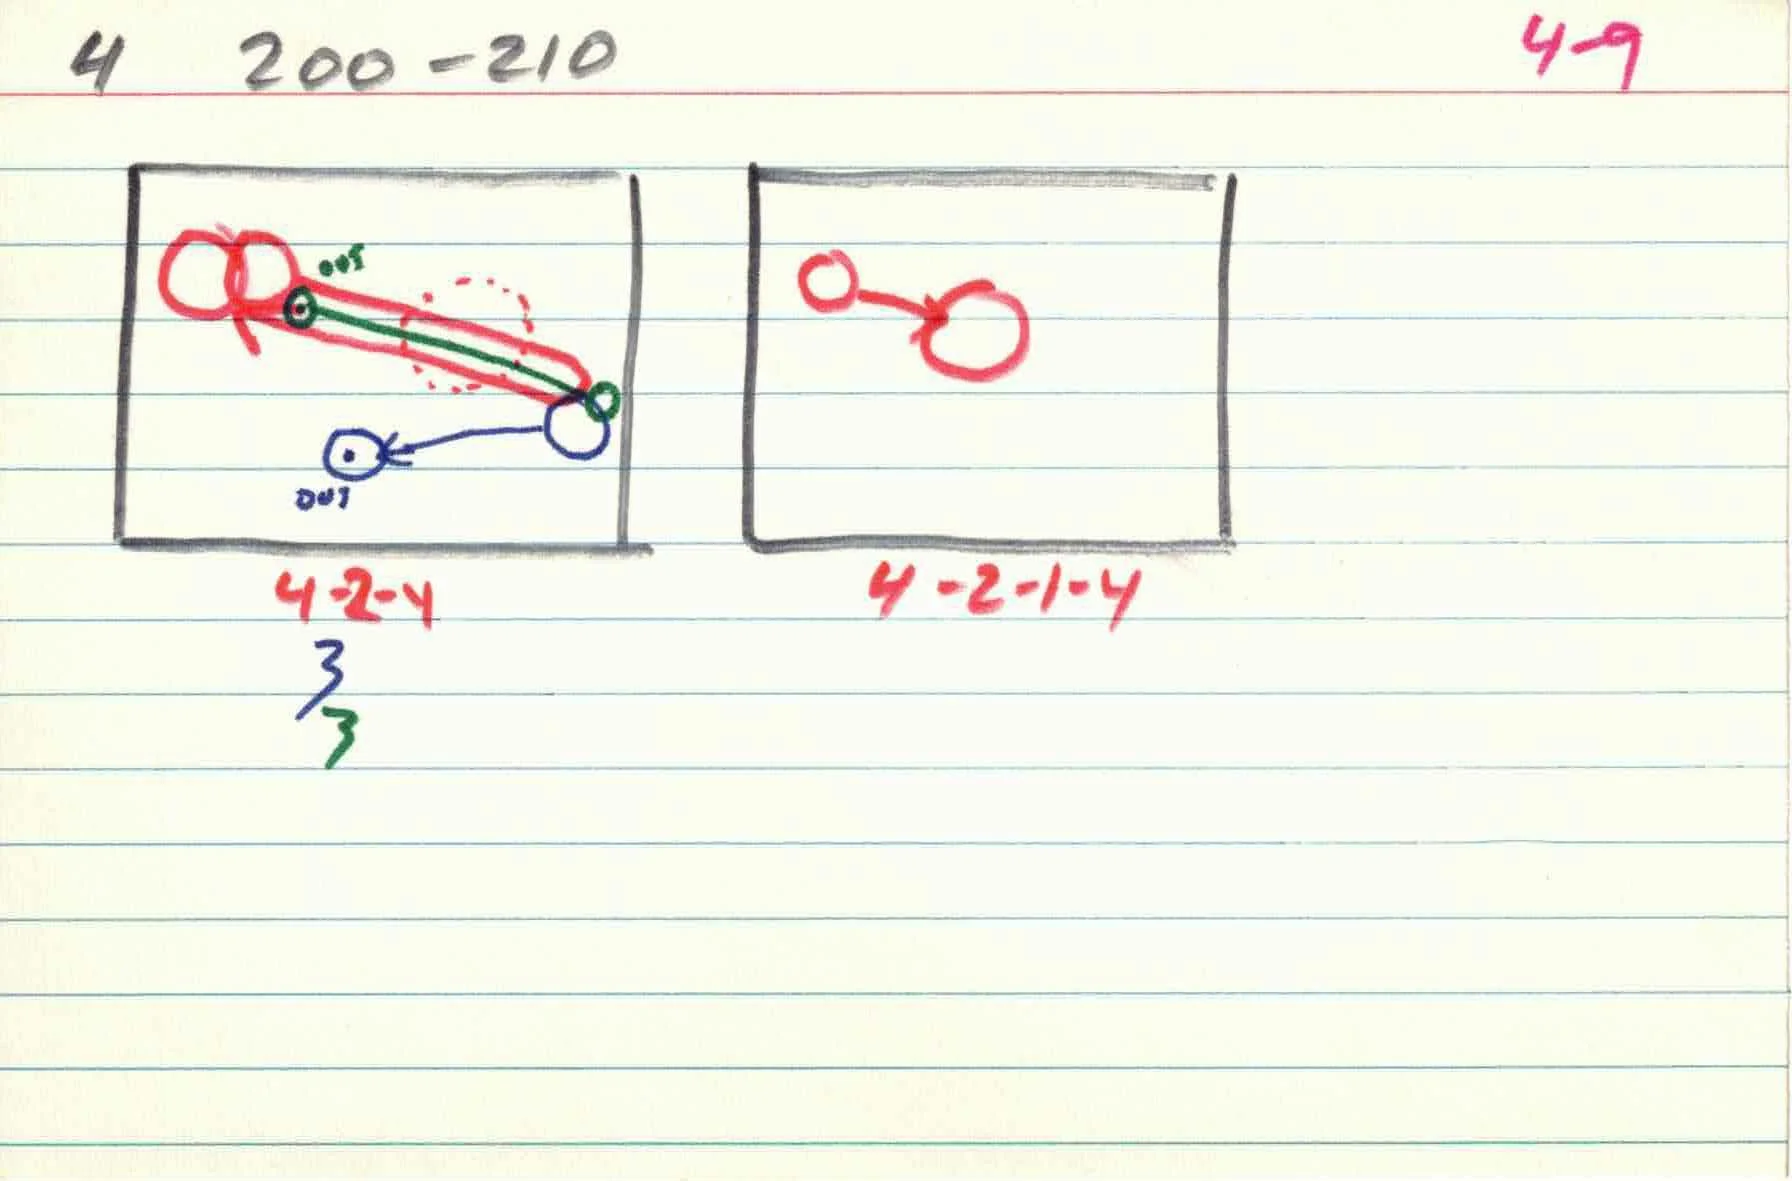 4 200-210 4-9
OUT
OUT
4-2-4 4-2-1-4
3
3